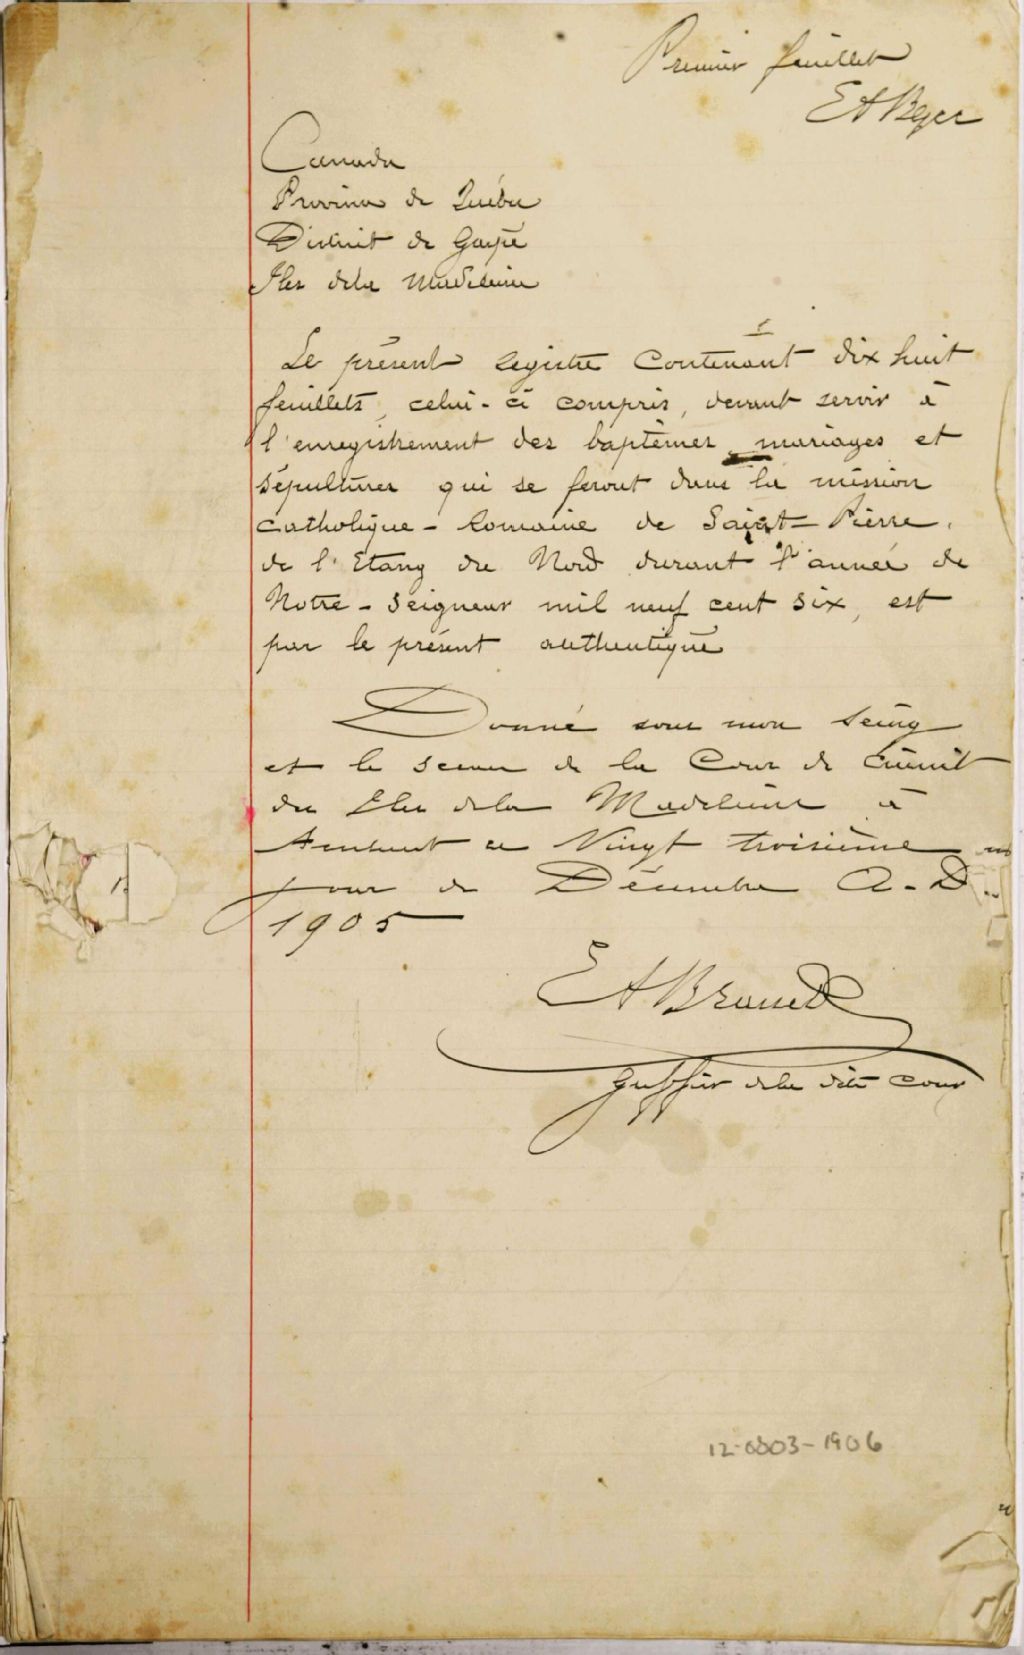 Premier feuillet
E A B
Canada
Province de Québec
District de Gaspé
Iles de la Madeleine
Le présent registre contenant dix huit
feuillets, celui-ci compris, devant servir à
l'enregistrement des baptêmes mariages et
sépultures qui se feront dans la mission
catholique-romaine de Saint-Pierre
de l'Etang du Nord durant l'année de
Notre-Seigneur mil neuf cent six, est
par le présent authentiqué
Donné sous mon seing
et le sceau de la Cour de Circuit
des Iles de la Madeleine à
Amherst ce Vingt troisième
jour de Décembre A.D.
1905
E A
Greffier de la dite cour
12-0803-1906